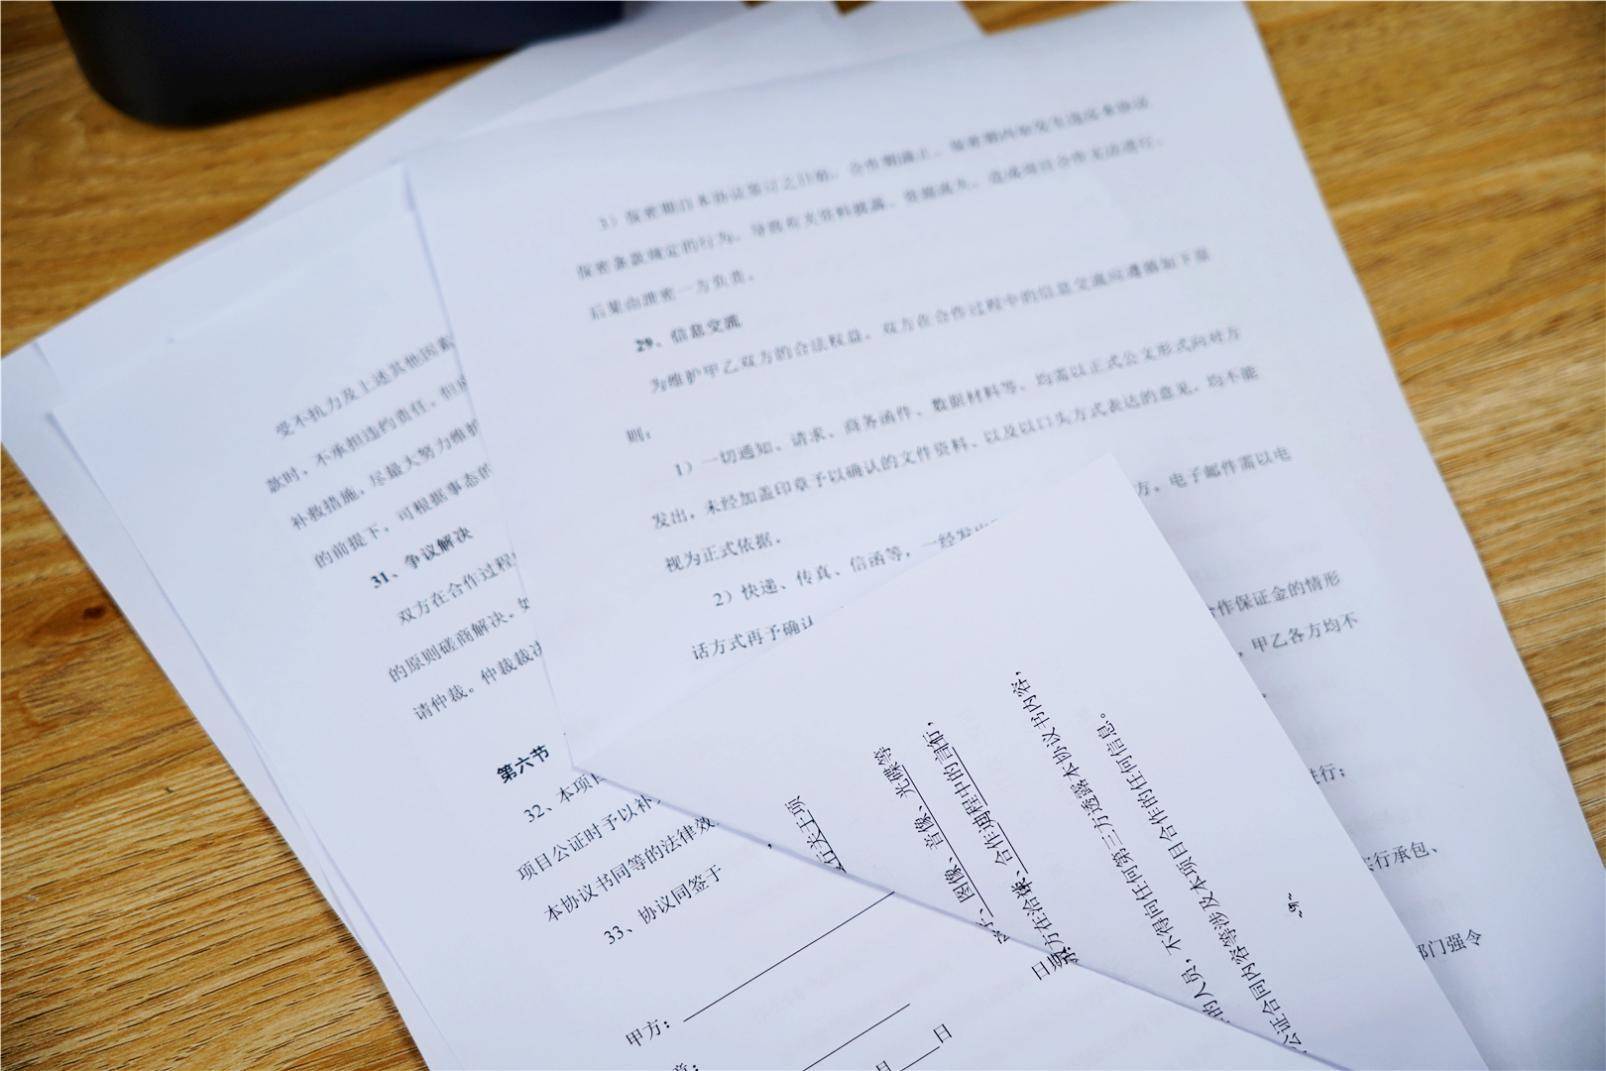 3）保密期自本协议签订之日始，合作期满止。保密期内如发生违反本协议
保密条款规定的行为，导致有关资料披露、资源流失，造成项目合作无法进行，
后果由泄密一方负责。
29、信息交流
为维护甲乙双方的合法权益，双方在合作过程中的信息交流应遵循如下原
则：
1）一切通知、请求、商务函件、数据材料等，均需以正式公文形式向对方
发出，未经加盖印章予以确认的文件资料、以及以口头方式表达的意见，均不能
视为正式依据。
2）快递、传真、信函等，一经发出
方，电子邮件需以电
话方式再予确认
合作保证金的情形
，甲乙各方均不
进行；
实行承包、
部门强令
受不抗力及上述其他因素
款时，不承担违约责任，但应
补救措施，尽最大努力维护
的前提下，可根据事态的
31、争议解决
双方在合作过程
的原则磋商解决。如
请仲裁。仲裁裁决
第六节
32、本项目
项目公证时予以补
本协议书同等的法律效
33、协议同签于
甲方：
章：
月
日
图像、音像、光碟等
双方在洽谈、合作过程中的目标，
的人员，不得向任何第三方透露本协议书内容，
公证合同内容等涉及本项目合作的任何信息。